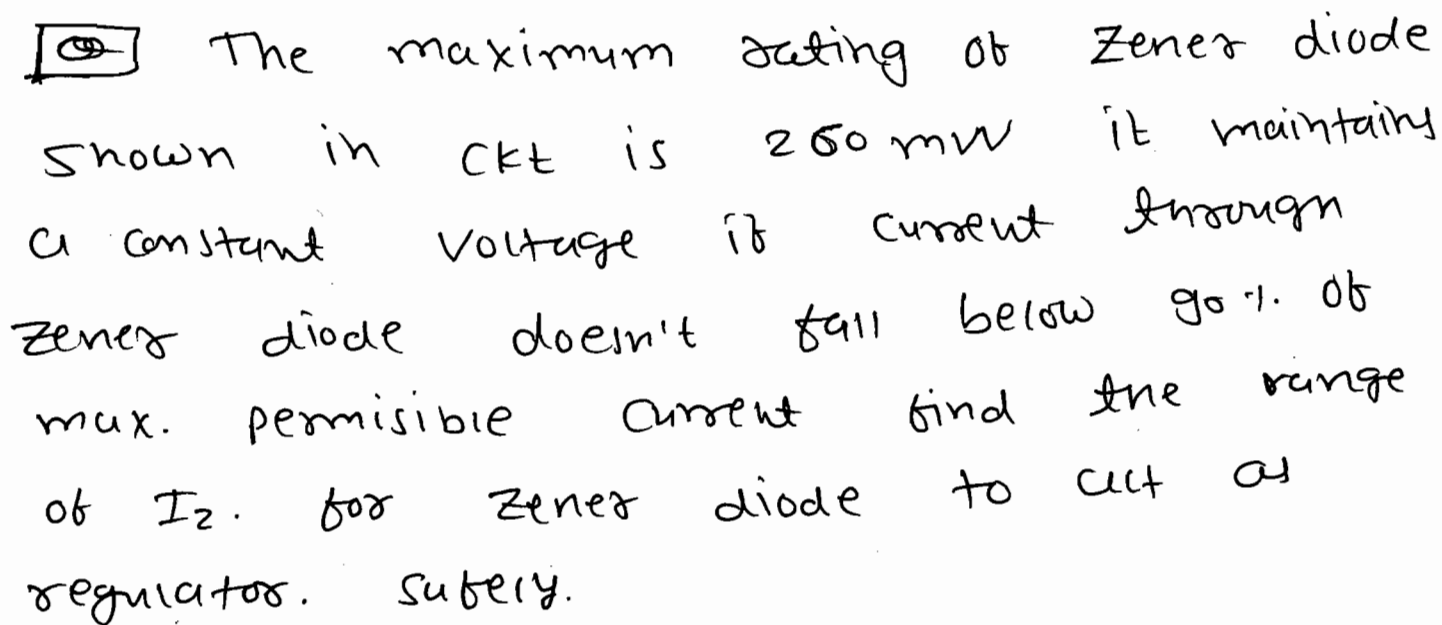 The maximum rating of Zener diode
shown in ckt is 250 mW it maintains
a constant voltage if current through
zener diode doesn't fall below 90 %. of
max. permisible current find the range
of Iz. for zener diode to act as
regulator. safely.